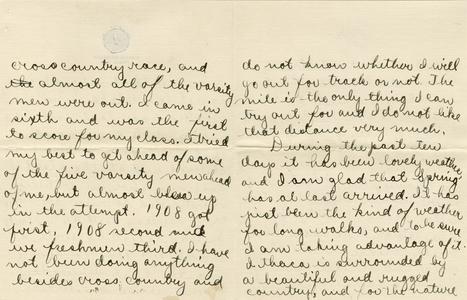 cross country race, and
the almost all of the varsity
men were out. I came in
sixth and was the first
to score for my class. I tried
my best to get ahead of some
of the five varsity men ahead
of me, but almost up
in the attempt. 1908 got
first, 1908 second and
we freshmen third. I have
not been doing anything
besides cross country and
do not know whether I will
go out for track or not. The
mile is the only thing I can
try out for and I do not like
that distance very much.
During the past ten
days it has been lovely weather
and I am glad that Spring
has at last arrived. It has
just been the kind of weather
for long walks, and to be sure
I am taking advantage of it.
Ithaca is surrounded by
a beautiful and rugged
country, and for the nature